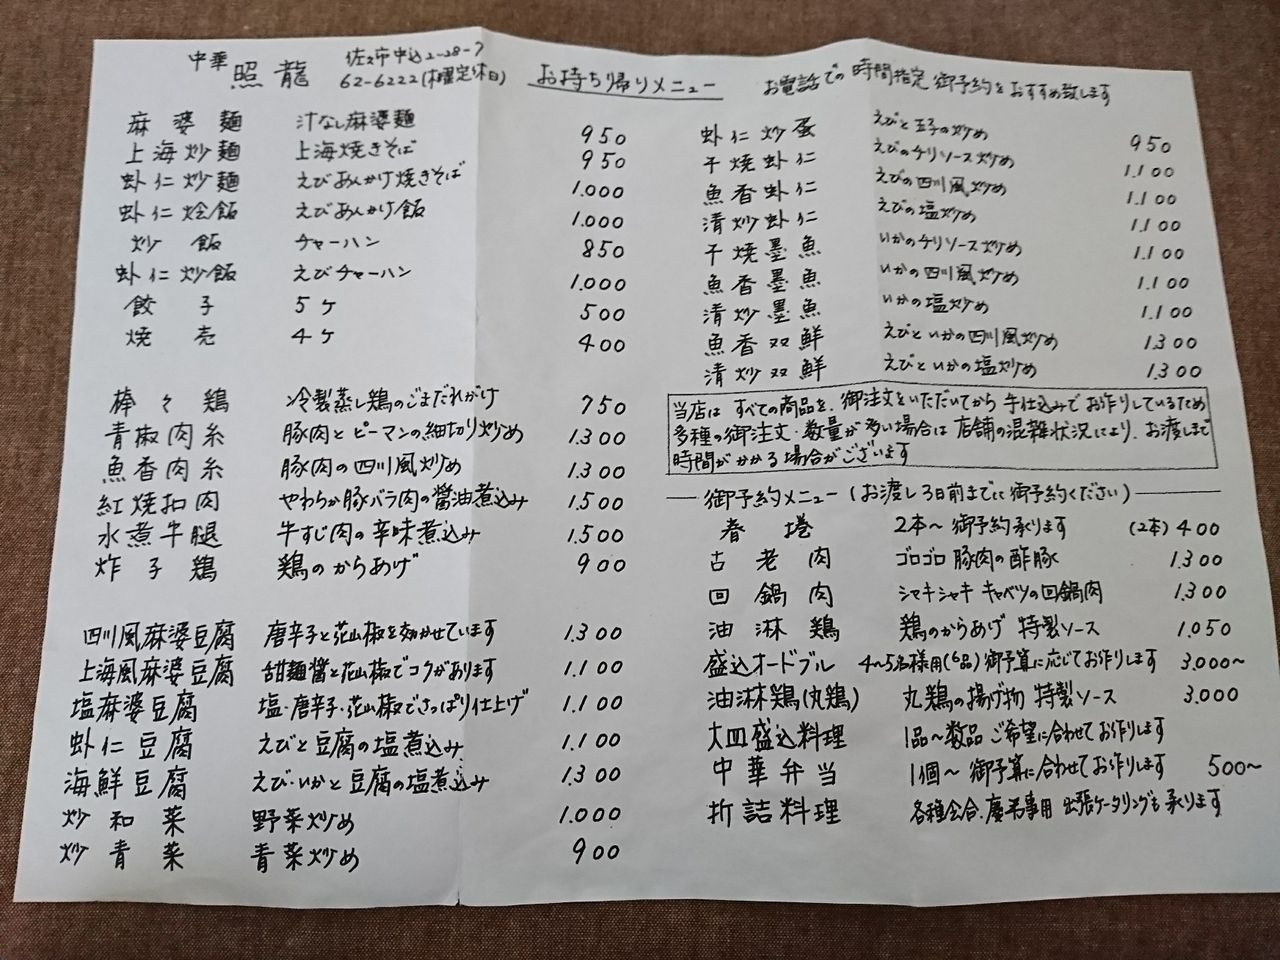 中華 照龍 佐久市中込2-28-7
62-6222(木曜定休日)
お持ち帰りメニュー
お電話での時間指定 御予約をおすすめ致します
麻婆麺 汁なし麻婆麺 950
上海炒麺 上海焼きそば 950
虾仁炒麺 えびあんかけ焼きそば 1.000
虾仁烩飯 えびあんかけ飯 1.000
炒飯 チャーハン 850
虾仁炒飯 えびチャーハン 1.000
餃子 5ケ 500
焼売 4ケ 400
棒々鶏 冷製蒸し鶏のごまだれがけ 750
青椒肉糸 豚肉とピーマンの細切り炒め 1.300
魚香肉糸 豚肉の四川風炒め 1.300
紅焼扣肉 やわらか豚バラ肉の醤油煮込み 1.500
水煮牛腿 牛すじ肉の辛味煮込み 1.500
炸子鶏 鶏のからあげ 900
四川風麻婆豆腐 唐辛子と花山椒を効かせています 1.300
上海風麻婆豆腐 甜麺醤と花山椒でコクがあります 1.100
塩麻婆豆腐 塩・唐辛子・花山椒でさっぱり仕上げ 1.100
虾仁豆腐 えびと豆腐の塩煮込み 1.100
海鮮豆腐 えび・いかと豆腐の塩煮込み 1.300
炒和菜 野菜炒め 1.000
炒青菜 青菜炒め 900
虾仁炒蛋 えびと玉子の炒め 950
干焼虾仁 えびのチリソース炒め 1.100
魚香虾仁 えびの四川風炒め 1.100
清炒虾仁 えびの塩炒め 1.100
干焼墨魚 いかのチリソース炒め 1.100
魚香墨魚 いかの四川風炒め 1.100
清炒墨魚 いかの塩炒め 1.100
魚香双鮮 えびといかの四川風炒め 1.300
清炒双鮮 えびといかの塩炒め 1.300
当店は すべての商品を、御注文をいただいてから 手仕込みでお作りしているため
多種の御注文・数量が多い場合は 店舗の混雑状況により、お渡しまで
時間がかかる場合がございます
御予約メニュー(お渡し3日前までに御予約ください)
春捲 2本〜 御予約承ります (2本) 400
古老肉 ゴロゴロ豚肉の酢豚 1.300
回鍋肉 シャキシャキ キャベツの回鍋肉 1.300
油淋鶏 鶏のからあげ 特製ソース 1.050
盛込オードブル 4〜5名様用(6品)御予算に応じてお作りします 3.000〜
油淋鶏(丸鶏) 丸鶏の揚げ物 特製ソース 3.000
大皿盛込料理 1品〜数品 ご希望に合わせてお作りします
中華弁当 1個〜 御予算に合わせてお作りします 500〜
折詰料理 各種会合、慶弔事用 出張ケータリングも承ります